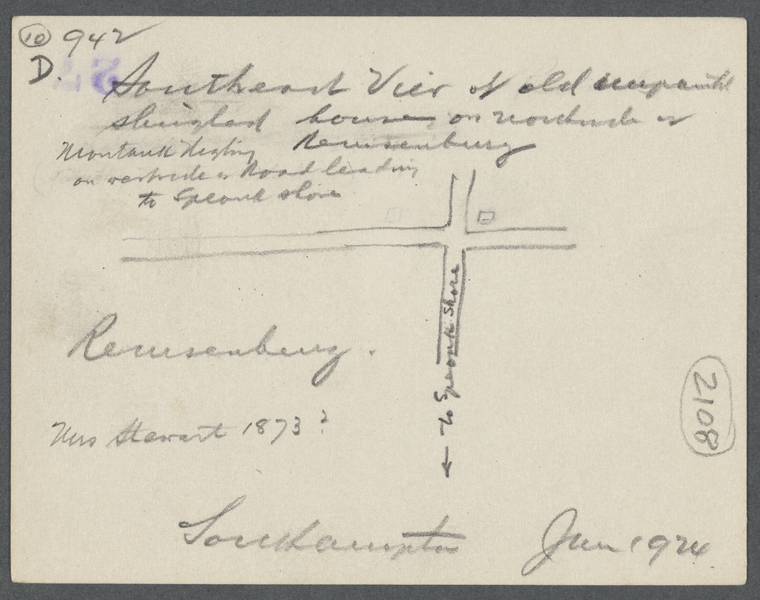 10 942
D.
Southeast View of old unpainted
shingled house on northside of
Montauk Highway Remsenburg
on westside of Road leading
to Speonk shore
← to Speonk Shore
Remsenburg.
2108
Mrs Stewart 1873?
Southampton June 1924